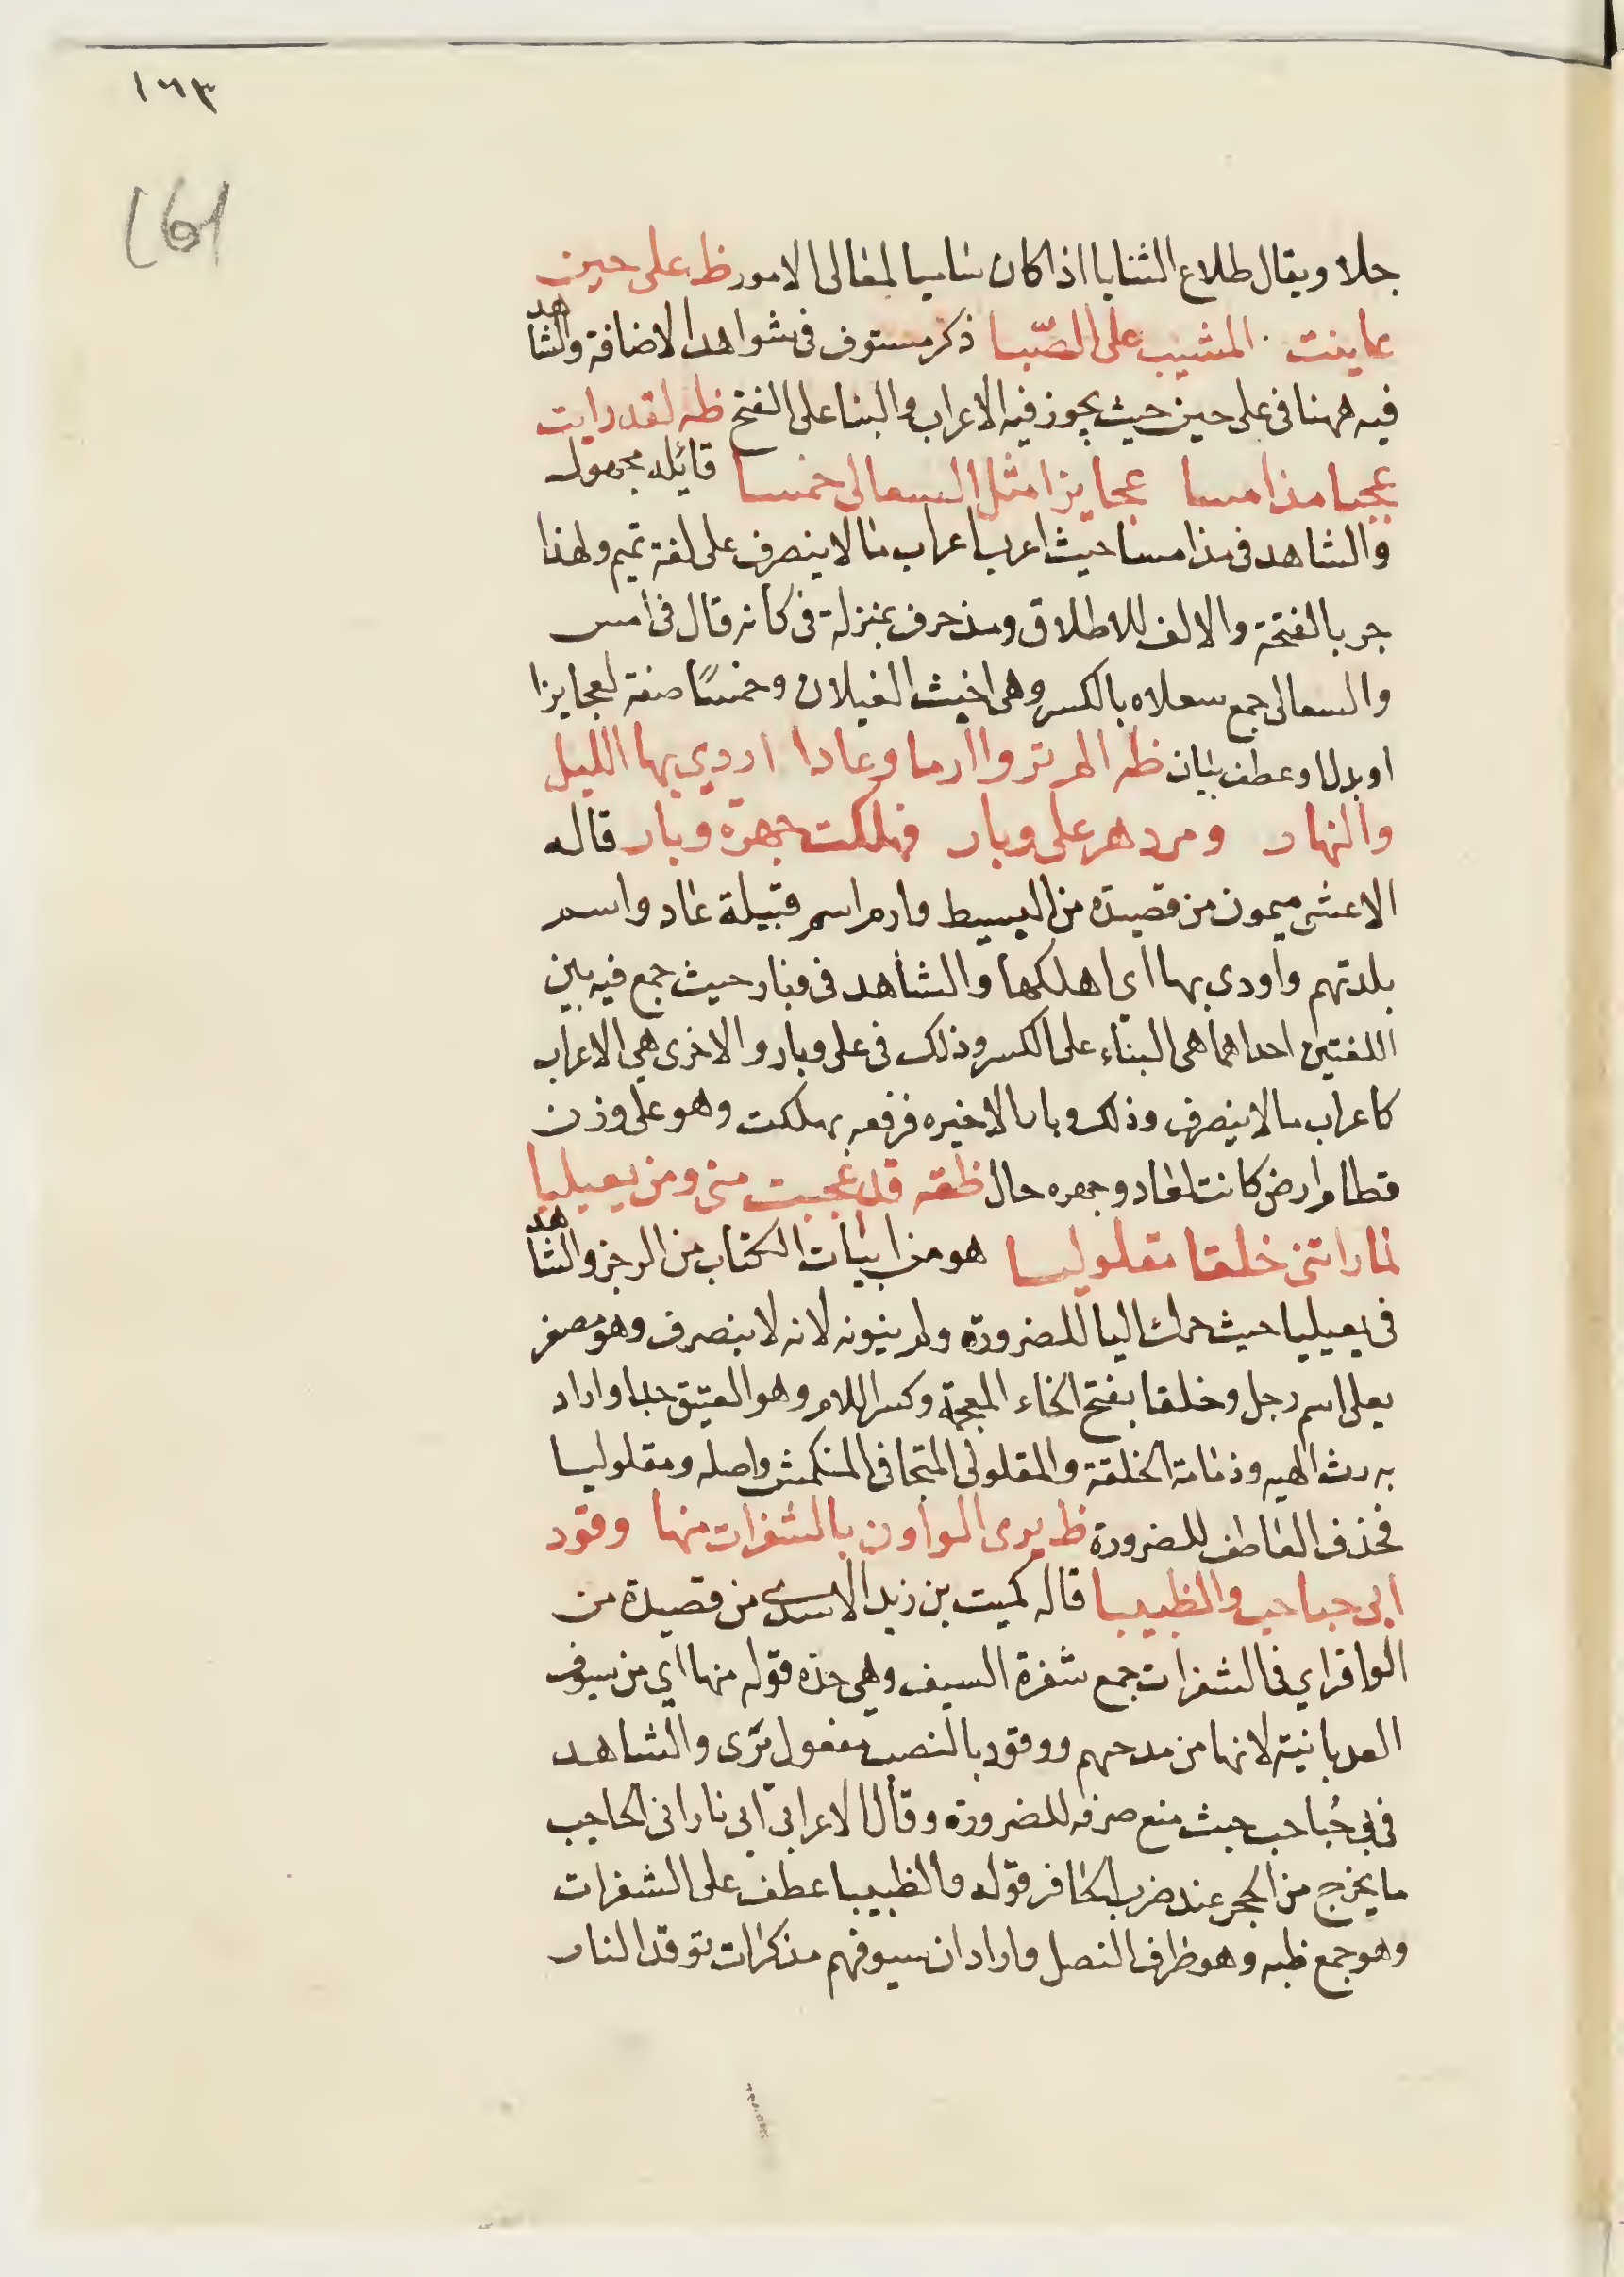 ١٦٣
161
جلا ويقال طلاع الثنايا اذا كان ساميا لمعالى الامور ظ على حين
عاينت المشيب على الصّبا ذكر مستوف فى شواهد الاضافة والشاهد
فيه ههنا فى على حين حيث يجوز فيه الاعراب والبنا على الفتح ظه لقد رايت
عجبا مذ امسا عجايزا مثل السعالى خمسا قائله مجهول
والشاهد فى مذ امسا حيث اعرب اعراب ما لا ينصرف على لغة تميم ولهذا
جر بالفتحة والالف للاطلاق ومذ حرف بمنزلة فى كانه قال فى امس
والسعالى جمع سعلاه بالكسر وهى اخبث الغيلان وخمسًا صفة لعجايزا
او بدل او عطف بيان ظه الم تروا ارما وعادا اردي بها الليل
والنهار ومر دهر على وبار فهلكت جهرة وبار قاله
الاعشى ميمون من قصيدة من البسيط وارم اسم قبيلة عاد واسم
بلدتهم واودى بها اى اهلكها والشاهد فى وبار حيث جمع فيه بين
اللغتين احداهما هى البناء على الكسر وذلك فى على وبار والاخرى هي الاعراب
كاعراب ما لا ينصرف وذلك وبار الاخيره فرفعه بهلكت وهو على وزن
قطام ارض كانت لعاد وجهره حال ظقه قد عجبت منى ومن يعيليا
لما راتنى خلقا مقلوليا هو من ابيات الكتاب من الرجز والشاهد
فى يعيليا حيث حرك اليا للضرورة ولم ينونه لانه لا ينصرف وهو مصغر
يعلى اسم رجل وخلقا بفتح الخاء المعجمة وكسر اللام وهو العتيق جدا واراد
به رث الهيه وذمامة الخلقة والمقلولى المتجافى المنكمش واصله ومقلوليا
فحذف العاطف للضرورة ظ يرى الراون بالشفرات منها وقود
ابى حباحب والظبيبا قاله كميت بن زيد الاسدي من قصيدة من
الوافر اي فى الشفرات جمع شفرة السيف وهي حده قوله منها اي من سيوف
العدبانية لانها من مدحهم ووقود بالنصب مفعول ترى والشاهد
فى بى حُباحب حيث منع صرفه للضرورة وقال الاعرابى ابى نار ابى الحاجب
ما يخرج من الحجر عند ضرب الحافر قوله والظبيبا عطف على الشفرات
وهو جمع ظبه وهو طرف النصل واراد ان سيوفهم مذكرات توقد النار